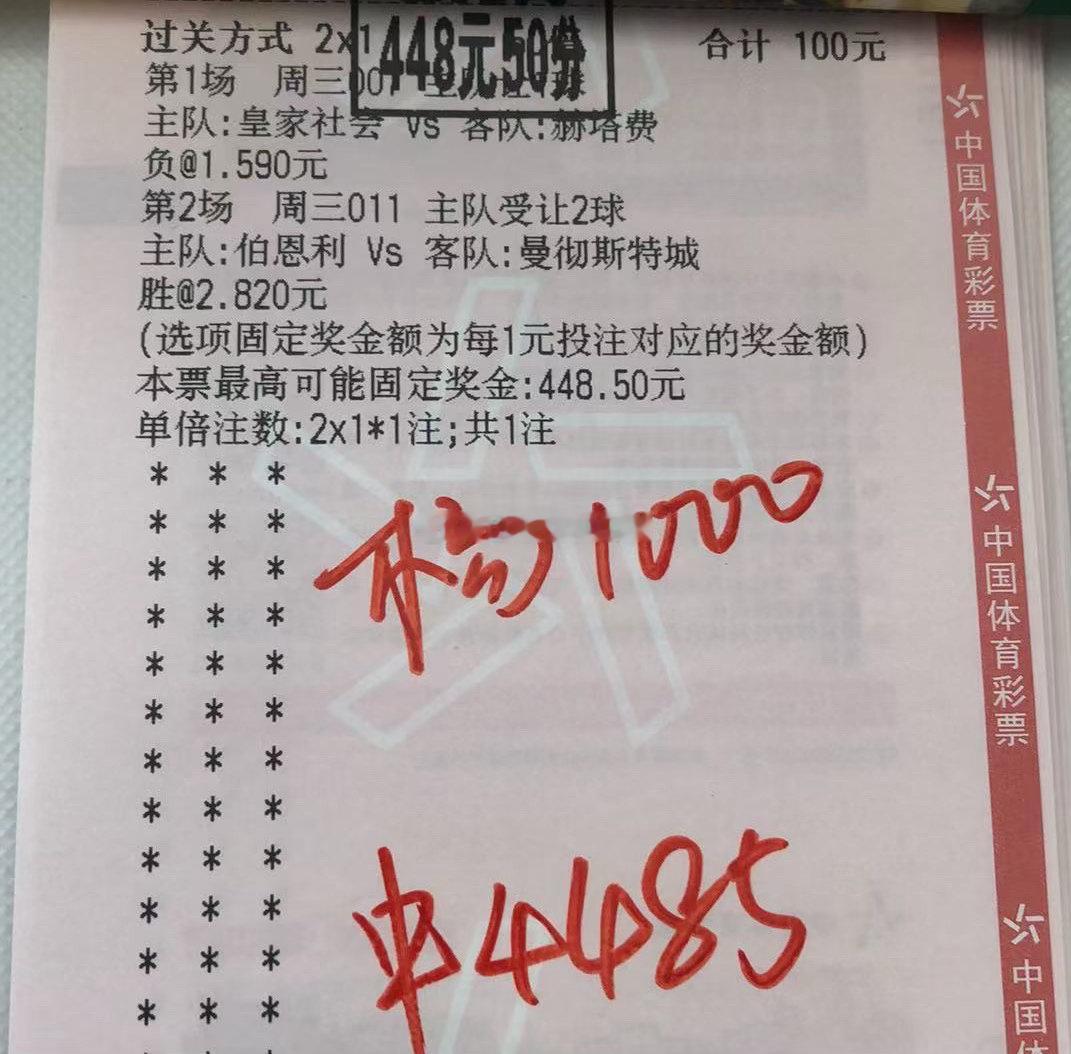 过关方式 2x1 合计 100元
448元50分
第1场 周三
主队:皇家社会 Vs 客队:赫塔费
负@1.590元
第2场 周三011 主队受让2球
主队:伯恩利 Vs 客队:曼彻斯特城
胜@2.820元
(选项固定奖金额为每1元投注对应的奖金额)
本票最高可能固定奖金:448.50元
单倍注数:2x1*1注;共1注
* * *
* * *
* * *
* * *
* * *
* * *
* * *
* * *
* * *
* * *
* * *
* * *
杨1000
中4485
中国体育彩票
中国体育彩票
中国体